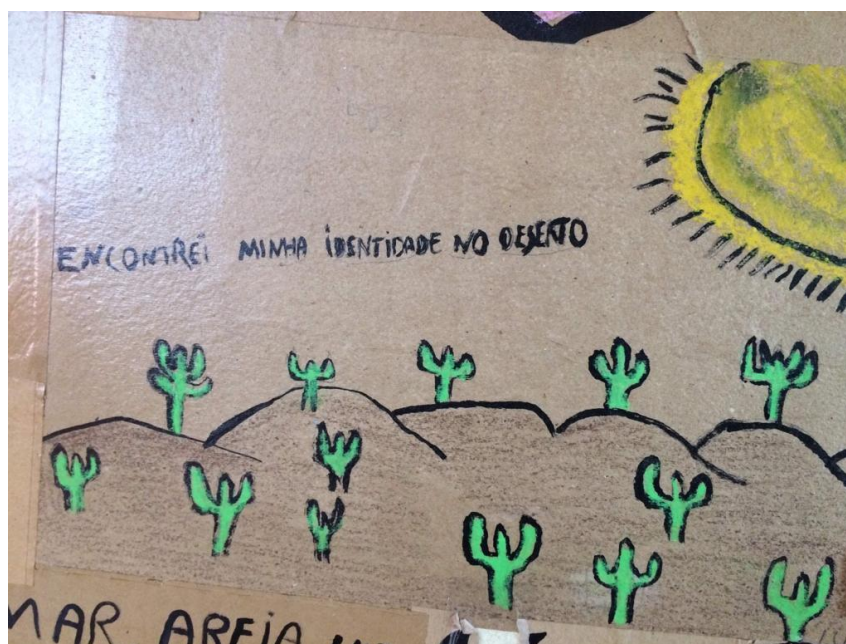 ENCONTREI MINHA IDENTIDADE NO DESERTO
MAR AREIA